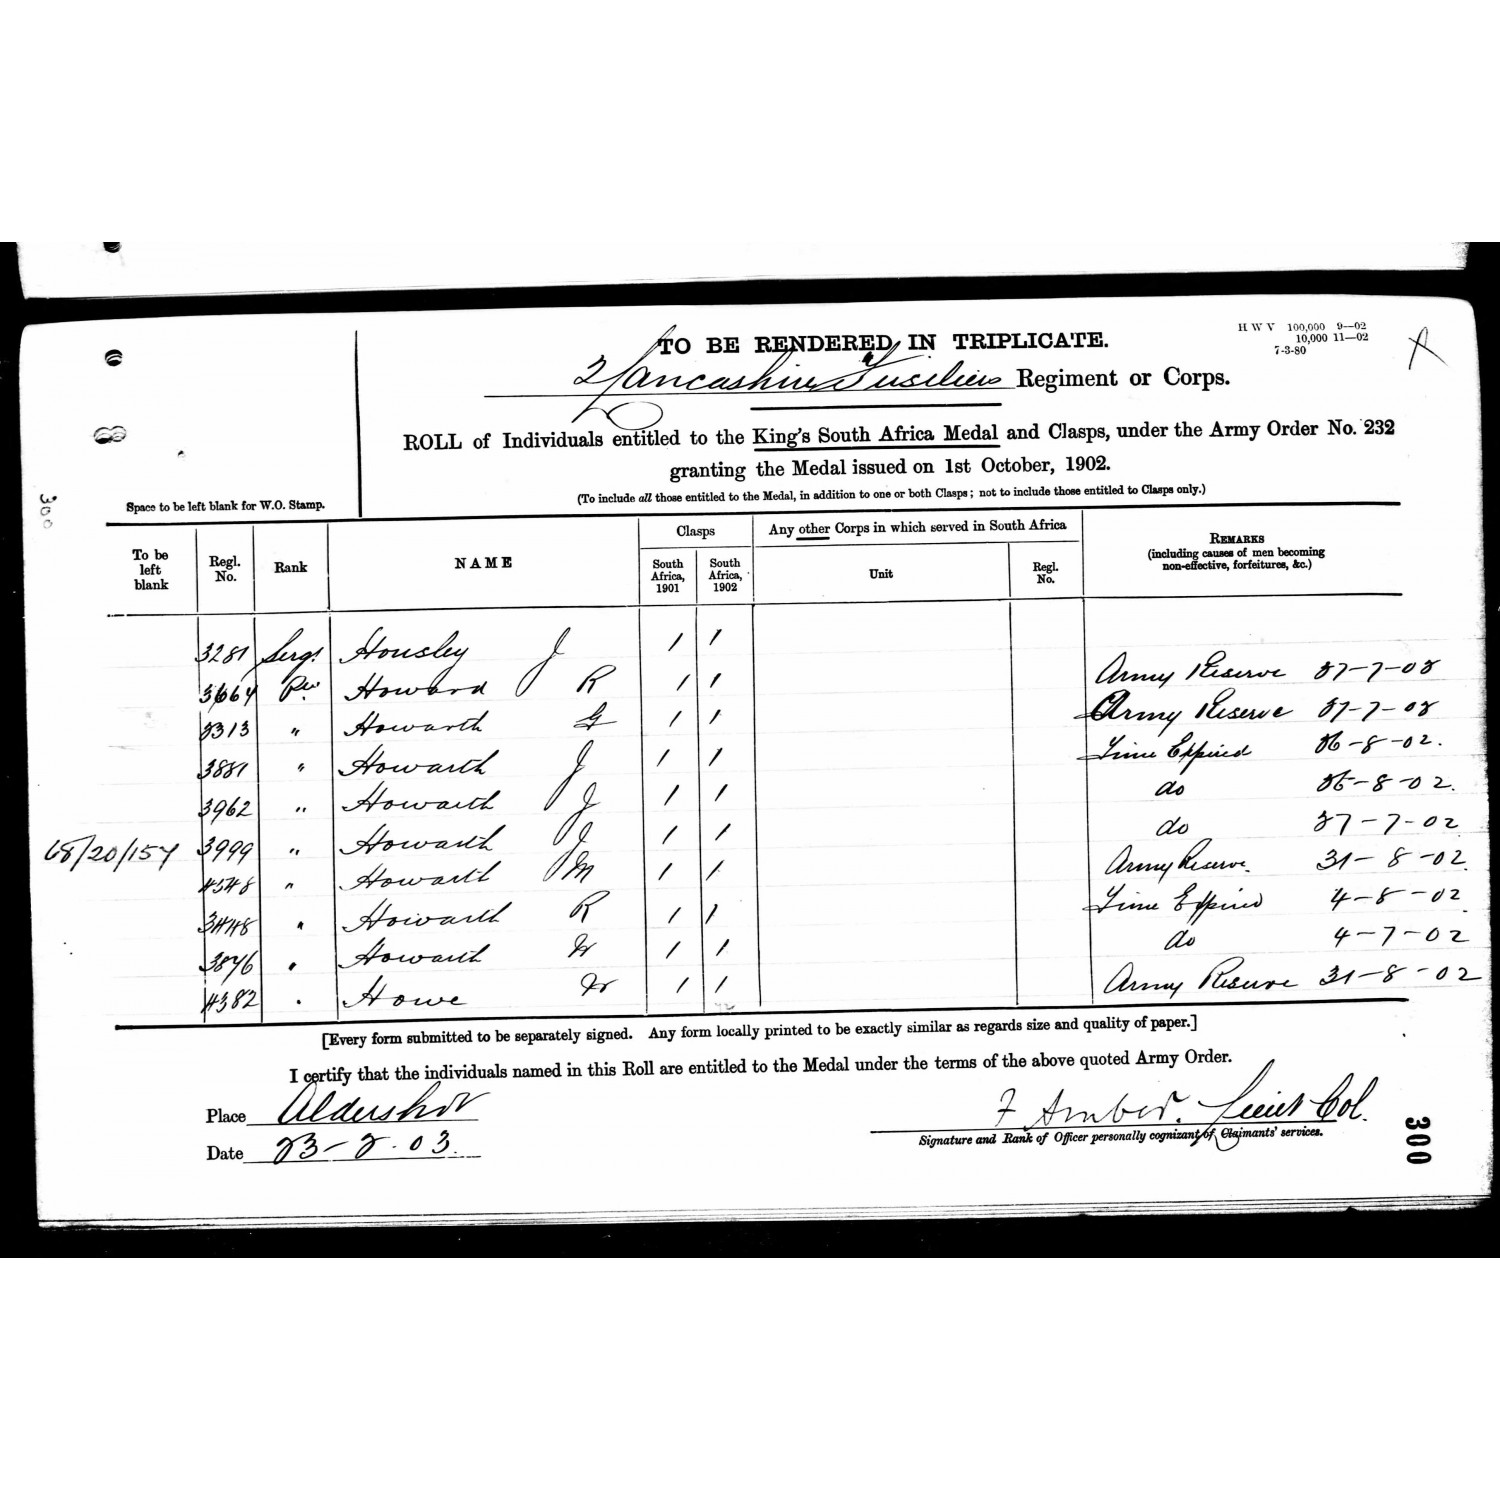 TO BE RENDERED IN TRIPLICATE.
H W V 100,000 9—02
10,000 11—02
7-3-80
2 Lancashire Fusiliers Regiment or Corps.
ROLL of Individuals entitled to the King's South Africa Medal and Clasps, under the Army Order No. 232
granting the Medal issued on 1st October, 1902.
(To include all those entitled to the Medal, in addition to one or both Clasps; not to include those entitled to Clasps only.)
Space to be left blank for W.O. Stamp.
300
To be left blank Regl. No. Rank NAME Clasps South Africa, 1901 South Africa, 1902 Any other Corps in which served in South Africa Unit Regl. No. REMARKS (including causes of men becoming non-effective, forfeitures, &c.)
3281 Sergt Housley J / /
3664 Pte Howard R / / Army Reserve 27-7-02
2313 " Howarth G / / Army Reserve 27-7-02
3881 " Howarth J / / Time Expired 26-8-02.
3962 " Howarth J / / do 26-8-02.
68/20/157 3999 " Howarth J / / do 27-7-02
4548 " Howarth M / / Army Reserve. 31-8-02
3448 " Howarth R / / Time Expired 4-8-02
3876 " Howarth W / / do 4-7-02
4382 " Howe W / / Army Reserve 31-8-02
[Every form submitted to be separately signed. Any form locally printed to be exactly similar as regards size and quality of paper.]
I certify that the individuals named in this Roll are entitled to the Medal under the terms of the above quoted Army Order.
Place Aldershot
Date 23-2-03.
Lieut Col.
Signature and Rank of Officer personally cognizant of Claimants' services.
300